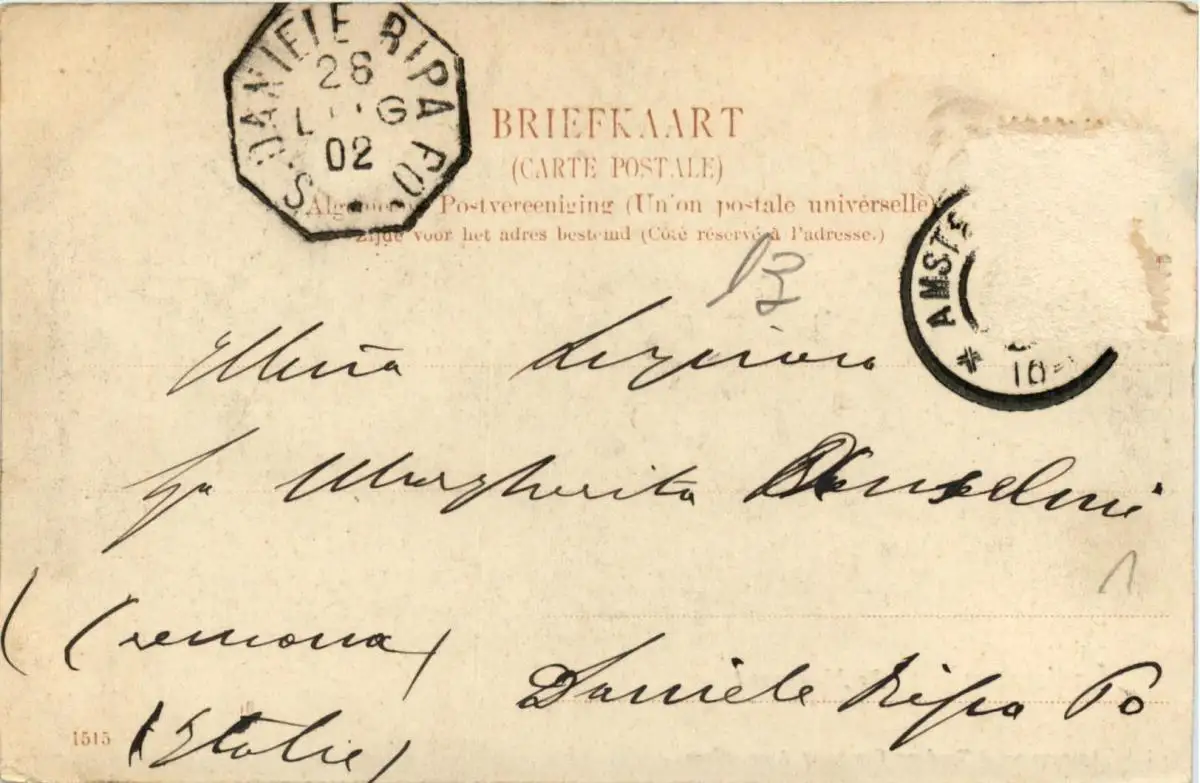 S. DANIELE RIPA PO.
28
L G
02
BRIEFKAART
(CARTE POSTALE)
Postvereeniging (Un on postale universelle)
Zijde voor het adres bestemd (Côté réservé à l'adresse.)
* AMSTE
10
Signora
Margherita Anselmi
(Cremona)
Daniele Ripa Po
(Italie)
1515